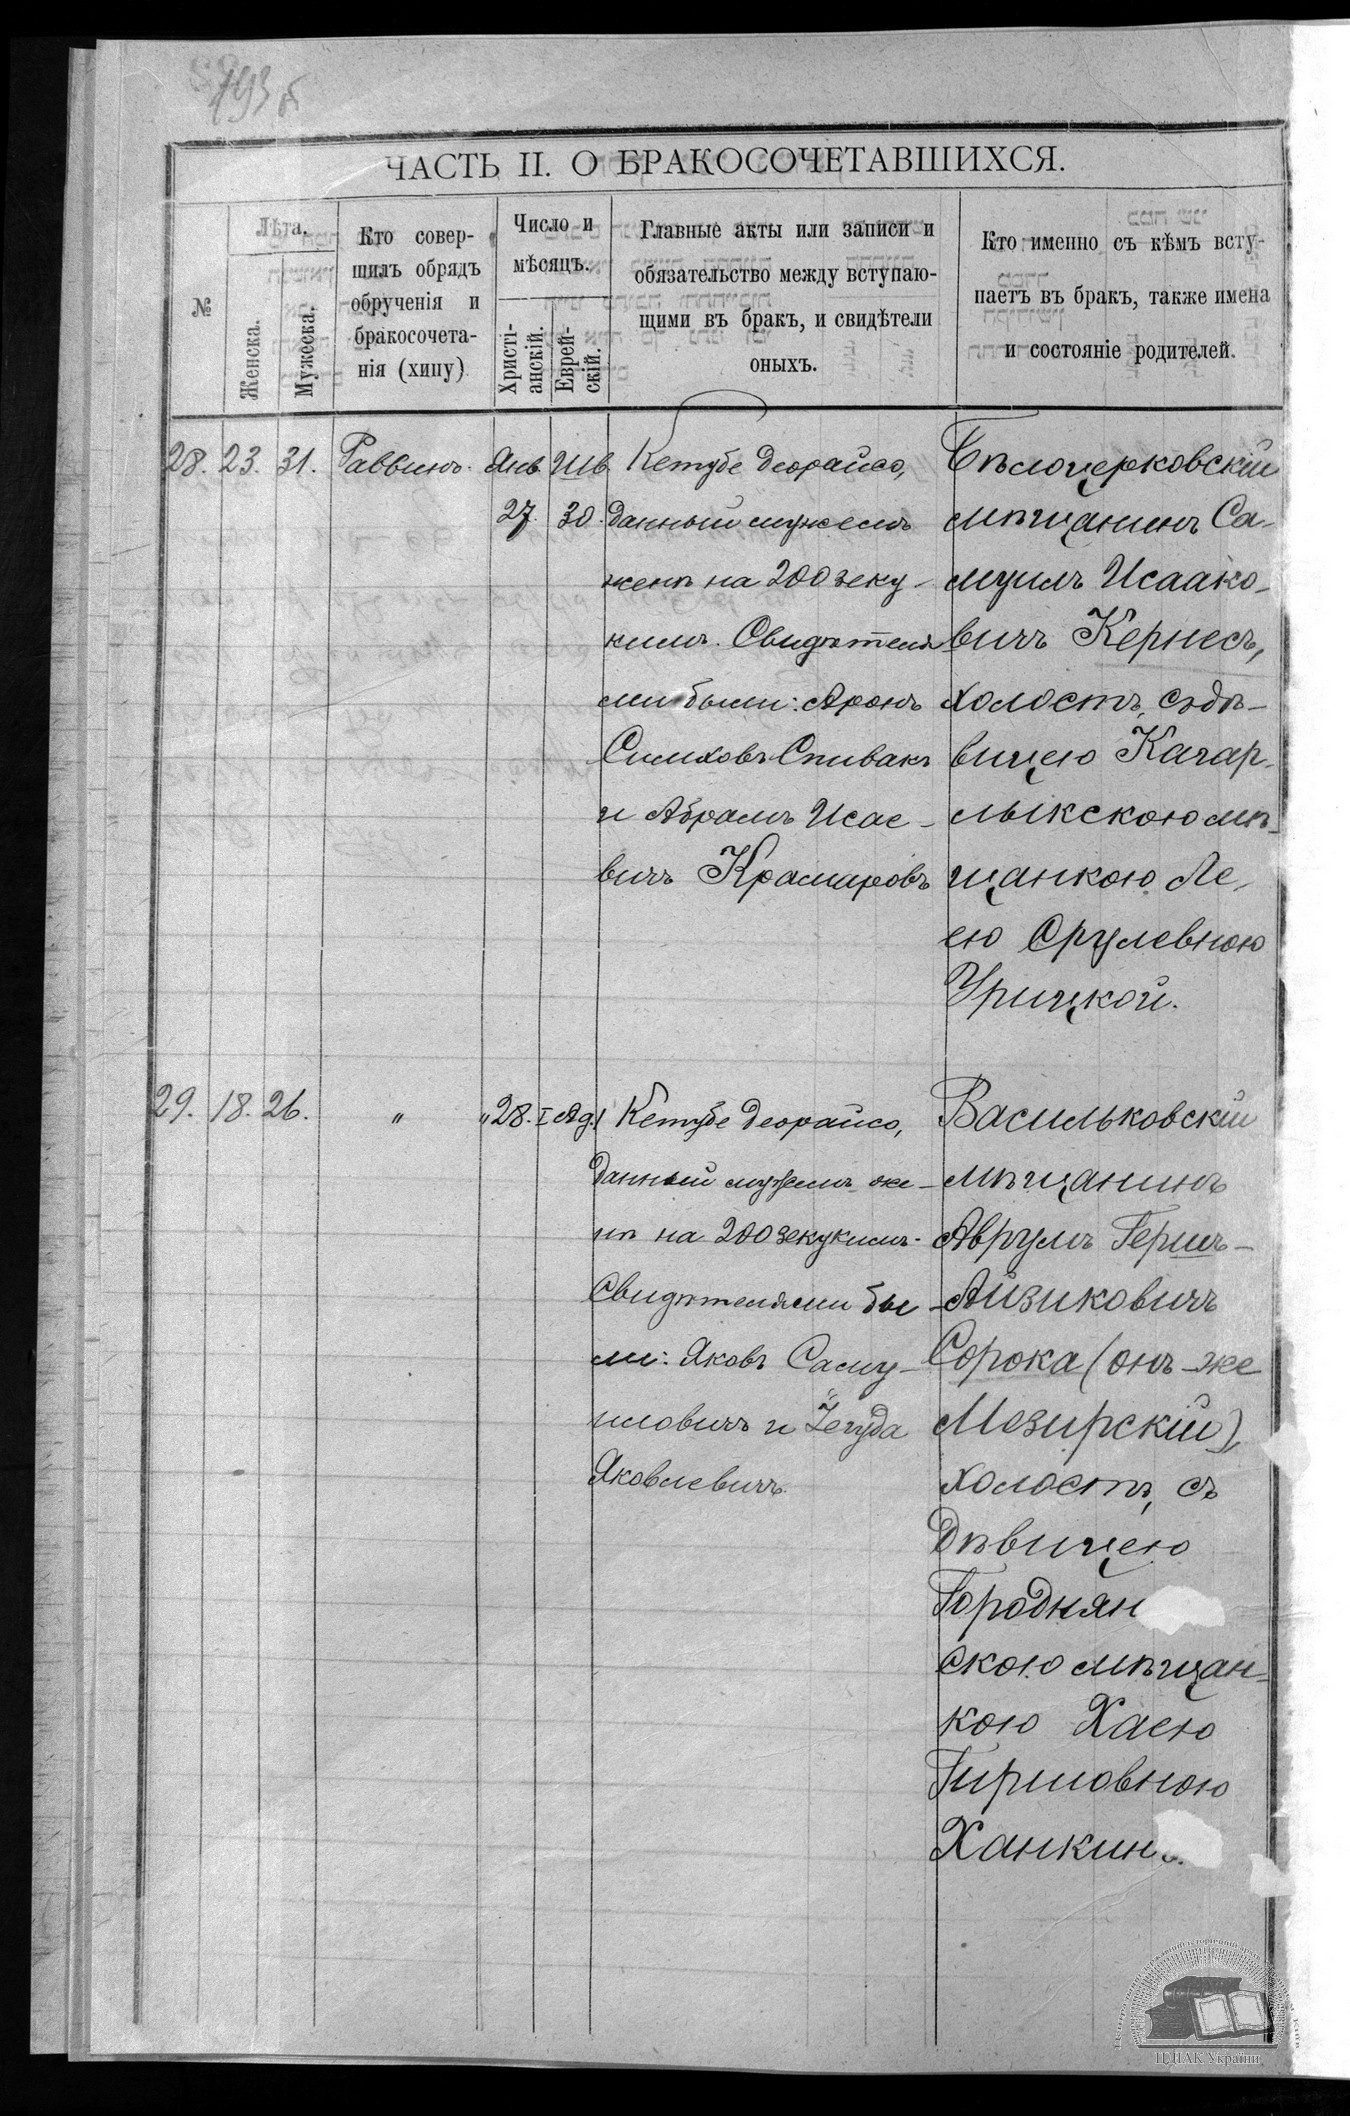 193 б
ЧАСТЬ II. О БРАКОСОЧЕТАВШИХСЯ.
№
Лѣта.
Женска.
Мужеска.
Кто совер-
шилъ обрядъ
обрученія и
бракосочета-
нія (хипу)
Число и
мѣсяцъ.
Христі-
анскій.
Еврей-
скій.
Главные акты или записи и
обязательство между вступаю-
щими въ бракъ, и свидѣтели
оныхъ.
Кто именно съ кѣмъ всту-
паетъ въ бракъ, также имена
и состояніе родителей.
28. 23. 31. Раввинъ. Янв. Шв.
27. 30.
Кетубе деорайсо,
данный мужемъ
женѣ на 200 зеку-
кимъ. Свидѣтеля
ми были: Аронъ
Симховъ Спивакъ
и Абрамъ Исае-
вичъ Крамаровъ
Бѣлоцерковскій
мѣщанинъ Са-
муилъ Исаако-
вичъ Кернесъ,
холостъ, съ дѣ-
вицею Кагар-
лыкскою мѣ-
щанкою Ле-
ею Срулевною
Урицкой.
29. 18. 26. " " 28. I Ад. 1
Кетубе деорайсо,
данный мужемъ же-
нѣ на 200 зекукимъ.
Свидѣтелями бы-
ли: Яковъ Саму-
иловичъ и Іегуда
Яковлевичъ.
Васильковскій
мѣщанинъ
Аврумъ Гершъ-
Айзиковичъ
Сорока (онъ-же
Мезирскій),
холостъ, съ
дѣвицею
Городнян
скою мѣщан-
кою Хаею
Гиршовною
Ханкин
ЦДІАК України